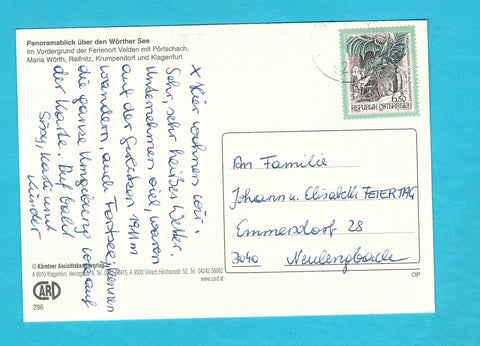 Panoramablick über den Wörther See
Im Vordergrund der Ferienort Velden mit Pörtschach,
Maria Wörth, Reifnitz, Krumpendorf und Klagenfurt
x Hier wohnen wir.
Sehr, sehr heißes Wetter.
Unternehmen viel, waren
auf der Gerlitzen 1911m
wandern, auch
die ganze Umgebung
der Karte. Auf bald
Kinder
6.50
REPUBLIK ÖSTERREICH
An Familie
Johann u. Elisabeth FEIERTAG
Emmersdorf 28
3040 Neulengbach
© Kärntner Ansichtskartenverlag
A 9010 Klagenfurt, A 9500 Villach, Heizhausstr. 52, Tel. 04242 56062
www.card.at
OP
CARD
296